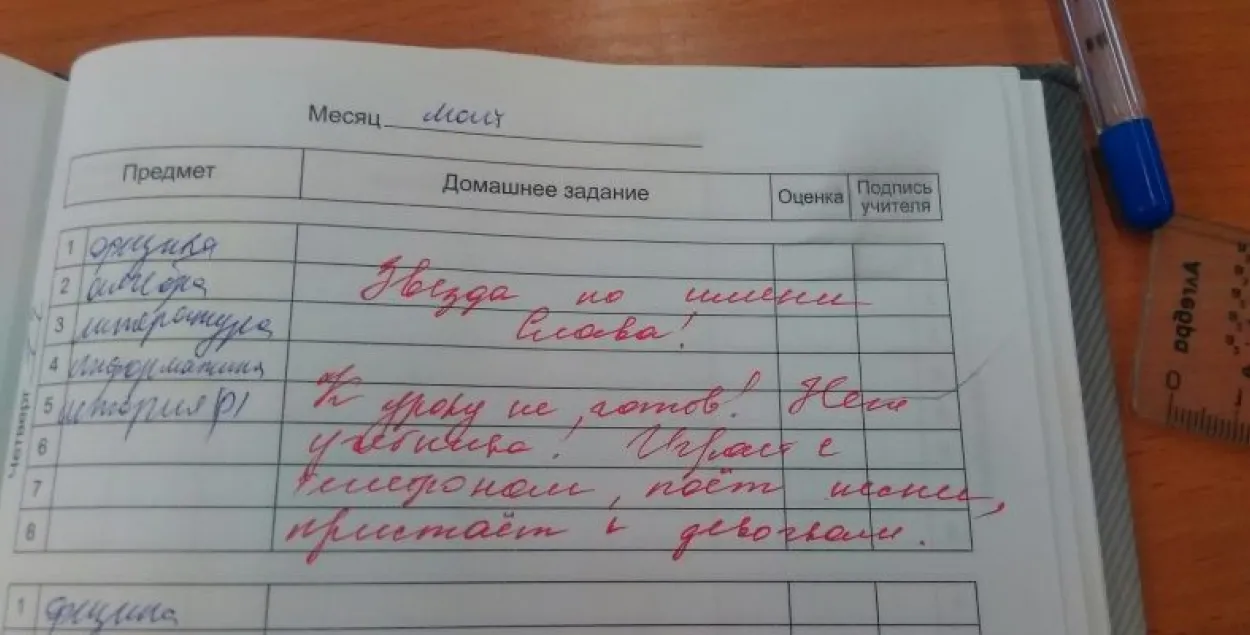 Месяц май
Предмет Домашнее задание Оценка Подпись учителя
1 физика
2 алгебра Звезда по имени
3 литература Слава!
4 информатика
5 история РI К уроку не готов! Нет
6 учебника! Играет с
7 телефоном, поёт песни,
8 пристаёт к девочкам.
Четверг
1 физика
Алгебра
0 1